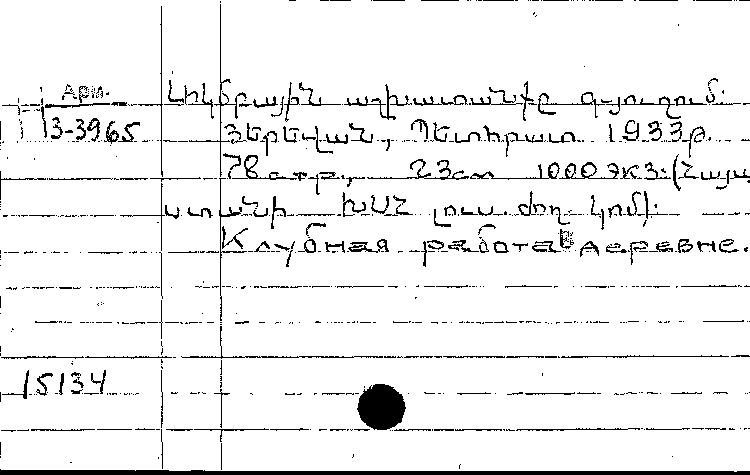 Арм.
3-3965
Լիկմբային աշխատանքը գյուղում:
Յերեվան, Պետհրատ 1933թ.
78 стр., 23см 1000 экз. (Հայա
ստանի ԽՍՀ լուս. ժող. կոմ):
Клубная работа в деревне.
15134